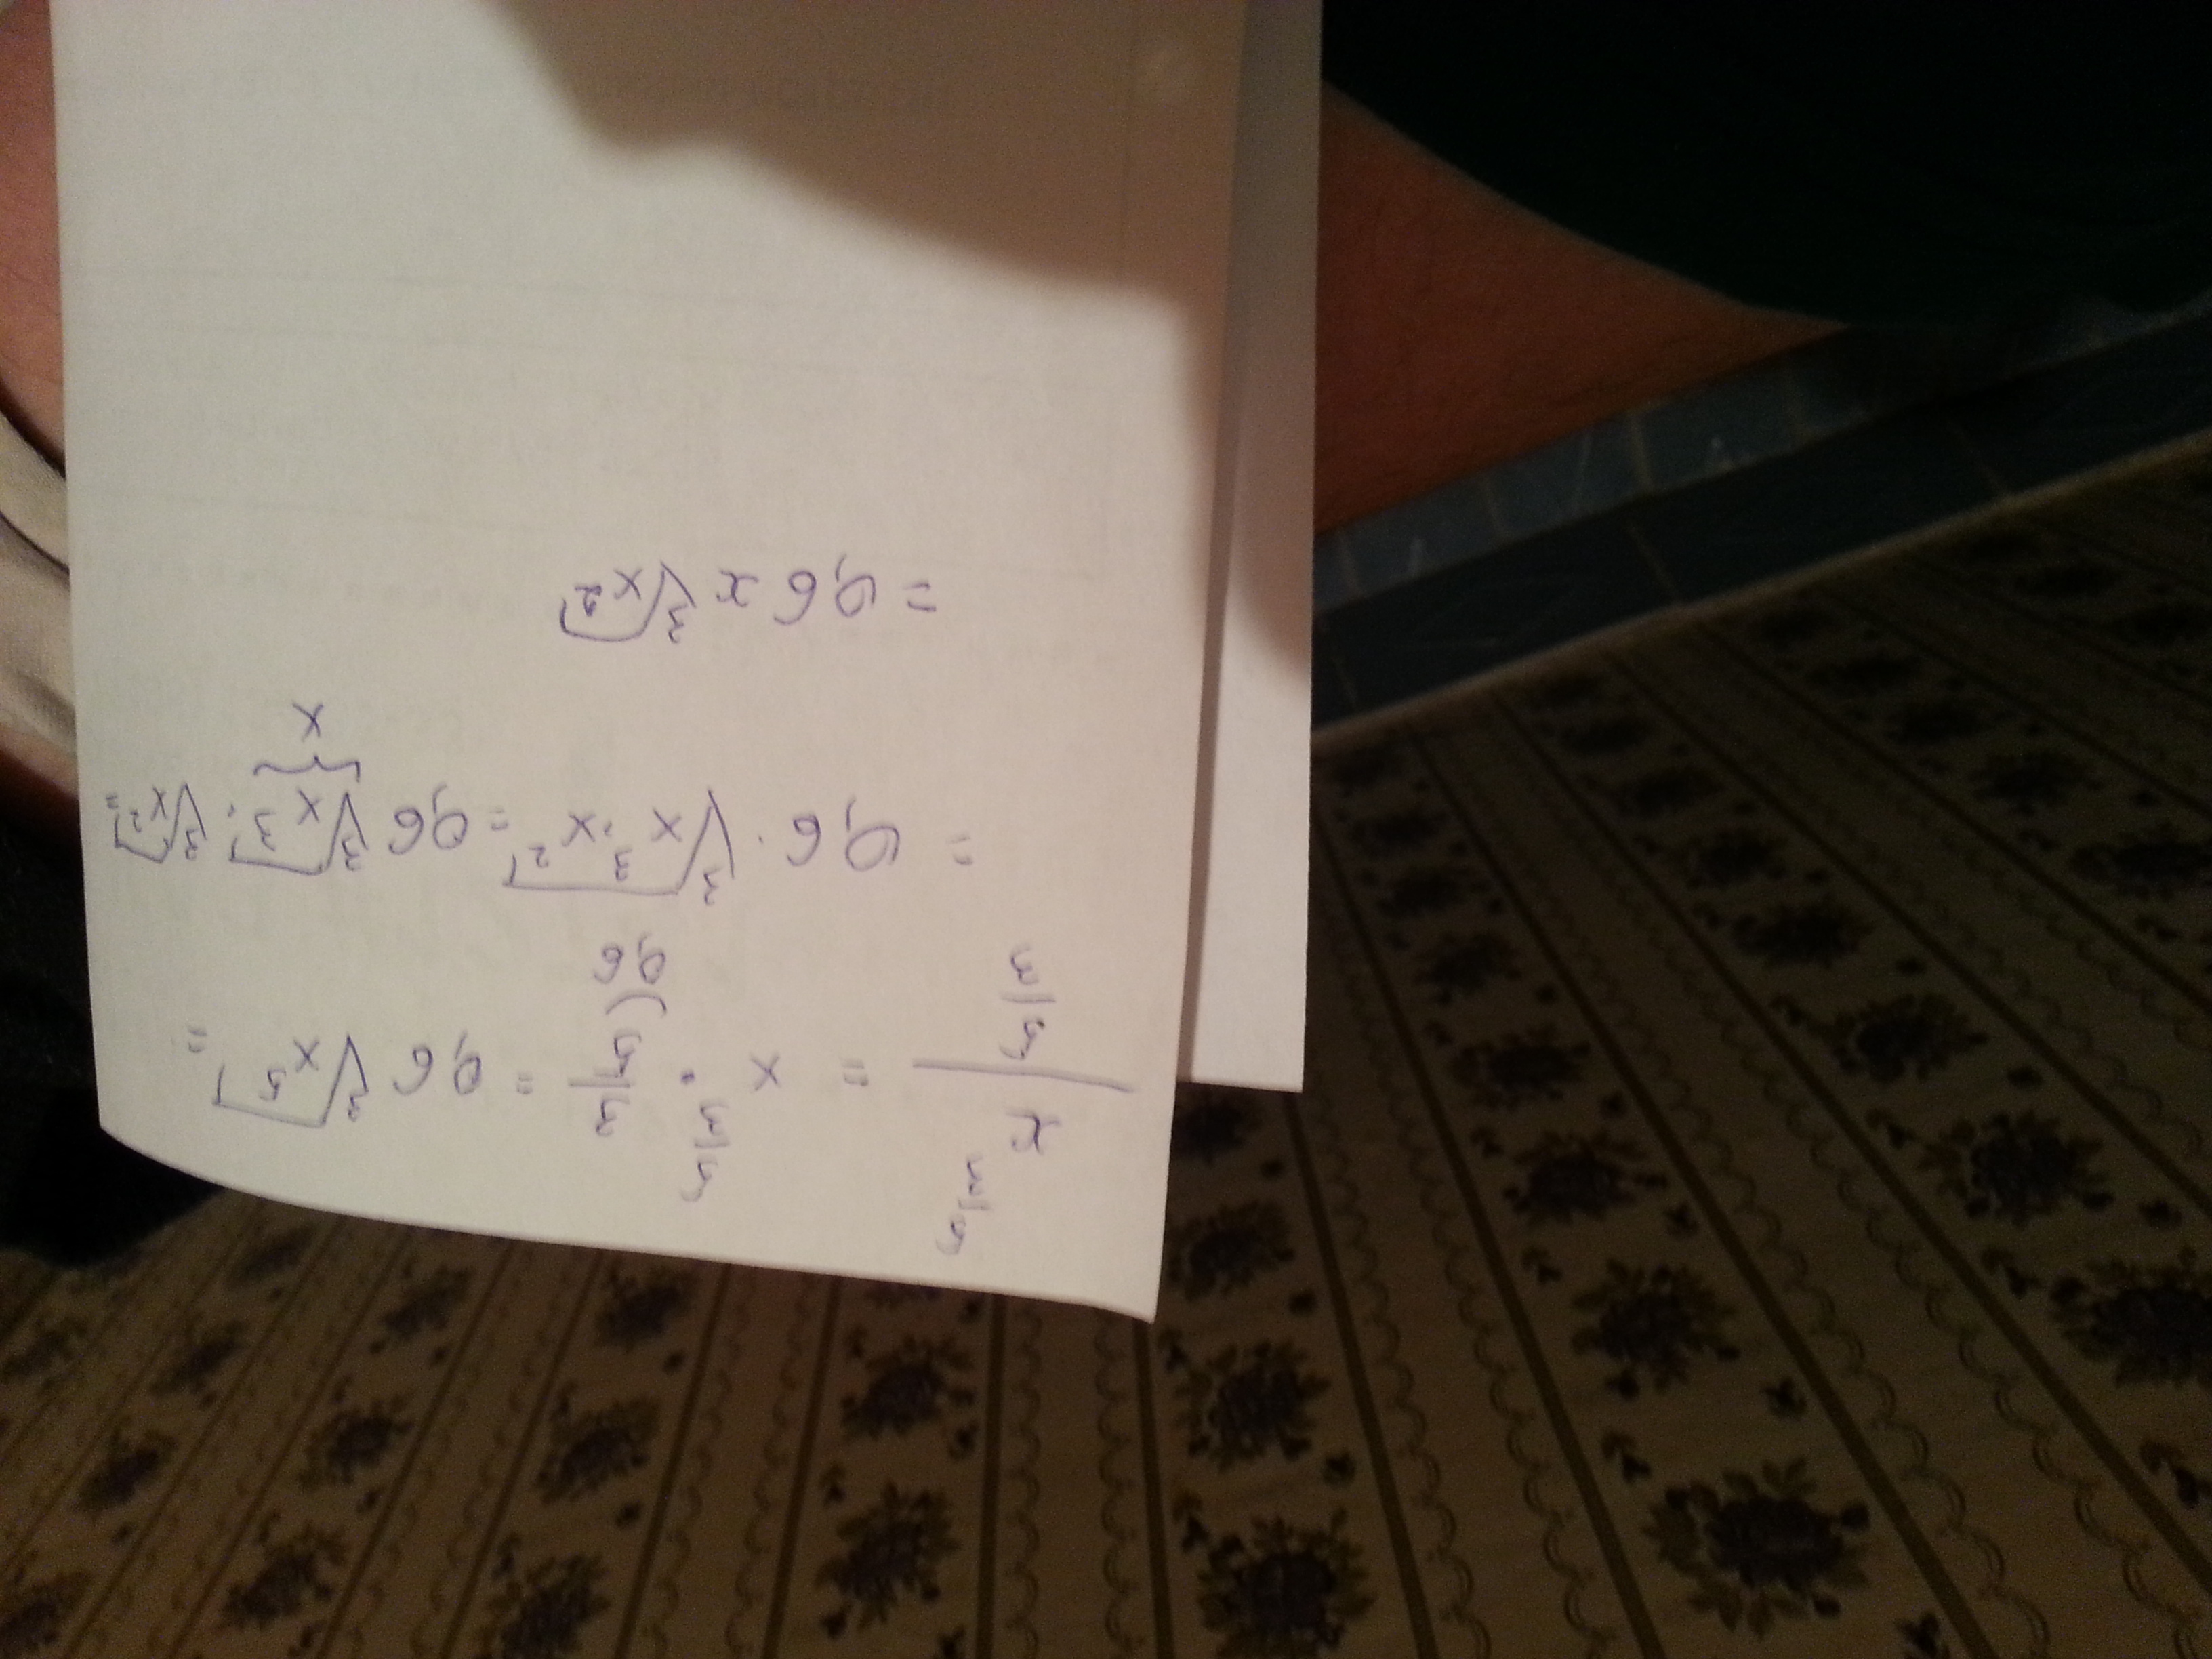 x^(5/3) / (5/3) = x^(5/3) · 3/5 = 0,6 ∛x⁵ =
0,6
= 0,6 · ∛(x³·x²) = 0,6 ∛x³ · ∛x² =
x
= 0,6 x ∛x²